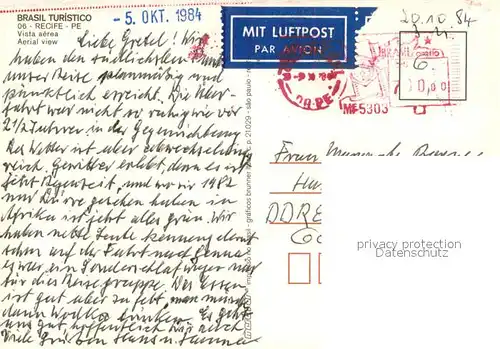 BRASIL TURÍSTICO
06 - RECIFE - PE
Vista aérea
Aerial view
- 5. OKT. 1984
MIT LUFTPOST
PAR AVION
20.10.84
Liebe Gretel! Wir
haben den südlichsten Punkt
unser Reise planmäßig und
pünktlich erreicht. Die Über-
fahrt war nicht so ruhig wie vor
2 1/2 Jahren in der Gegenrichtung
Das Wetter ist aber abwechselung
reich. Gewitter erlebt, denn es ist
jetzt Regenzeit, und wo wir 1982
nur Dürre gesehen haben in
Afrika ist jetzt alles grün. Wir
haben nette Leute kennengelernt
schon auf der Fahrt nach Genua
es war ein Sonderschlafwagen nur
für die Reisegruppe. Das Essen
ist gut aber zu fett, man muß
dann Wodka trinken. Es geht
uns gut, hoffentlich dir auch
Viele Grüße Hans u.
MF5303
Frau
DDR
privacy protection
Datenschutz